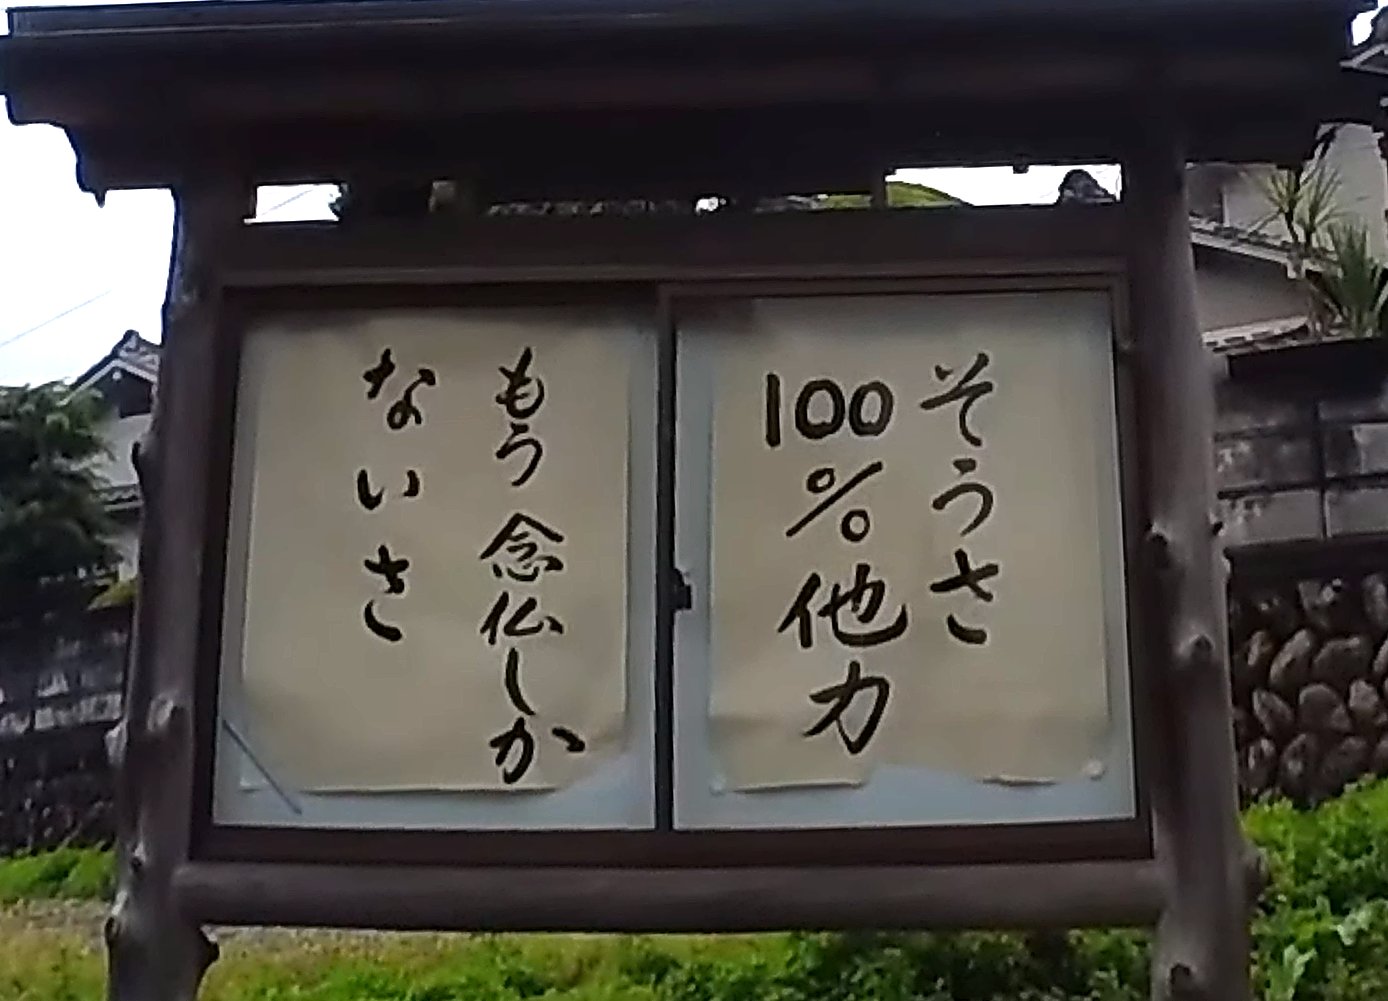 そうさ
100%他力
もう念仏しか
ないさ